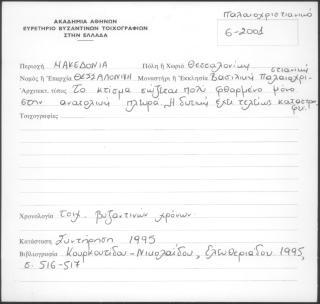 Παλαιοχριστιανικό
ΑΚΑΔΗΜΙΑ ΑΘΗΝΩΝ
ΕΥΡΕΤΗΡΙΟ ΒΥΖΑΝΤΙΝΩΝ ΤΟΙΧΟΓΡΑΦΙΩΝ
ΣΤΗΝ ΕΛΛΑΔΑ
6-2001
Περιοχή ΜΑΚΕΔΟΝΙΑ Πόλη ή Χωριό Θεσσαλονίκη
Νομός ή Ἐπαρχία ΘΕΣΣΑΛΟΝΙΚΗ Μοναστήρι ή Ἐκκλησία Βασιλική Παλαιοχρι-
στιανική
Ἀρχιτεκτ. τύπος Το κτίσμα σώζεται πολύ φθαρμένο μόνο
στην ανατολική πλευρά. Η δυτική έχει τελείως καταστρ
φεί.
Τοιχογραφίες
Χρονολογία τοιχ. βυζαντινών χρόνων.
Κατάσταση Συντήρηση 1995
Βιβλιογραφία Κουρκουτίδου-Νικολαΐδου, Ελευθεριάδου 1995,
σ. 516-517